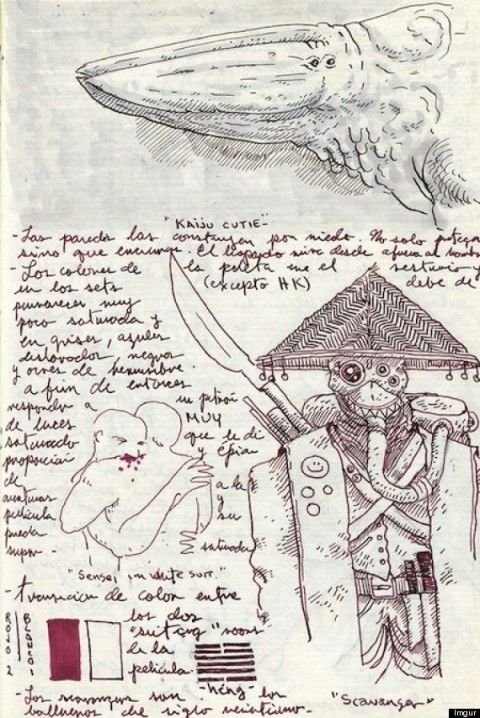 "KAIJU CUTIE"
- Las paredes las construyen por miedo. No solo protegen
sino que encierran. El
- Los colores de la paleta en el vestuario y
en los sets (excepto HK) debe de
permanecer muy
poco saturada y
en grises, azules
deslavados, negros
y ocres de herrumbre.
a fin de entonces un patrón
responda a MUY
de luces que le dé
saturado y épica
proporción
de a la
aventuras y
película su
pueda
saturada
"Sensei in white surr."
- transición de color entre
ROJO 2 BLANCO 1 los dos
"suiting" rooms
es la
película.
- héng - los
"Scavanger"
- Los scavangers son
balleneros de siglo veintiuno -
Imgur